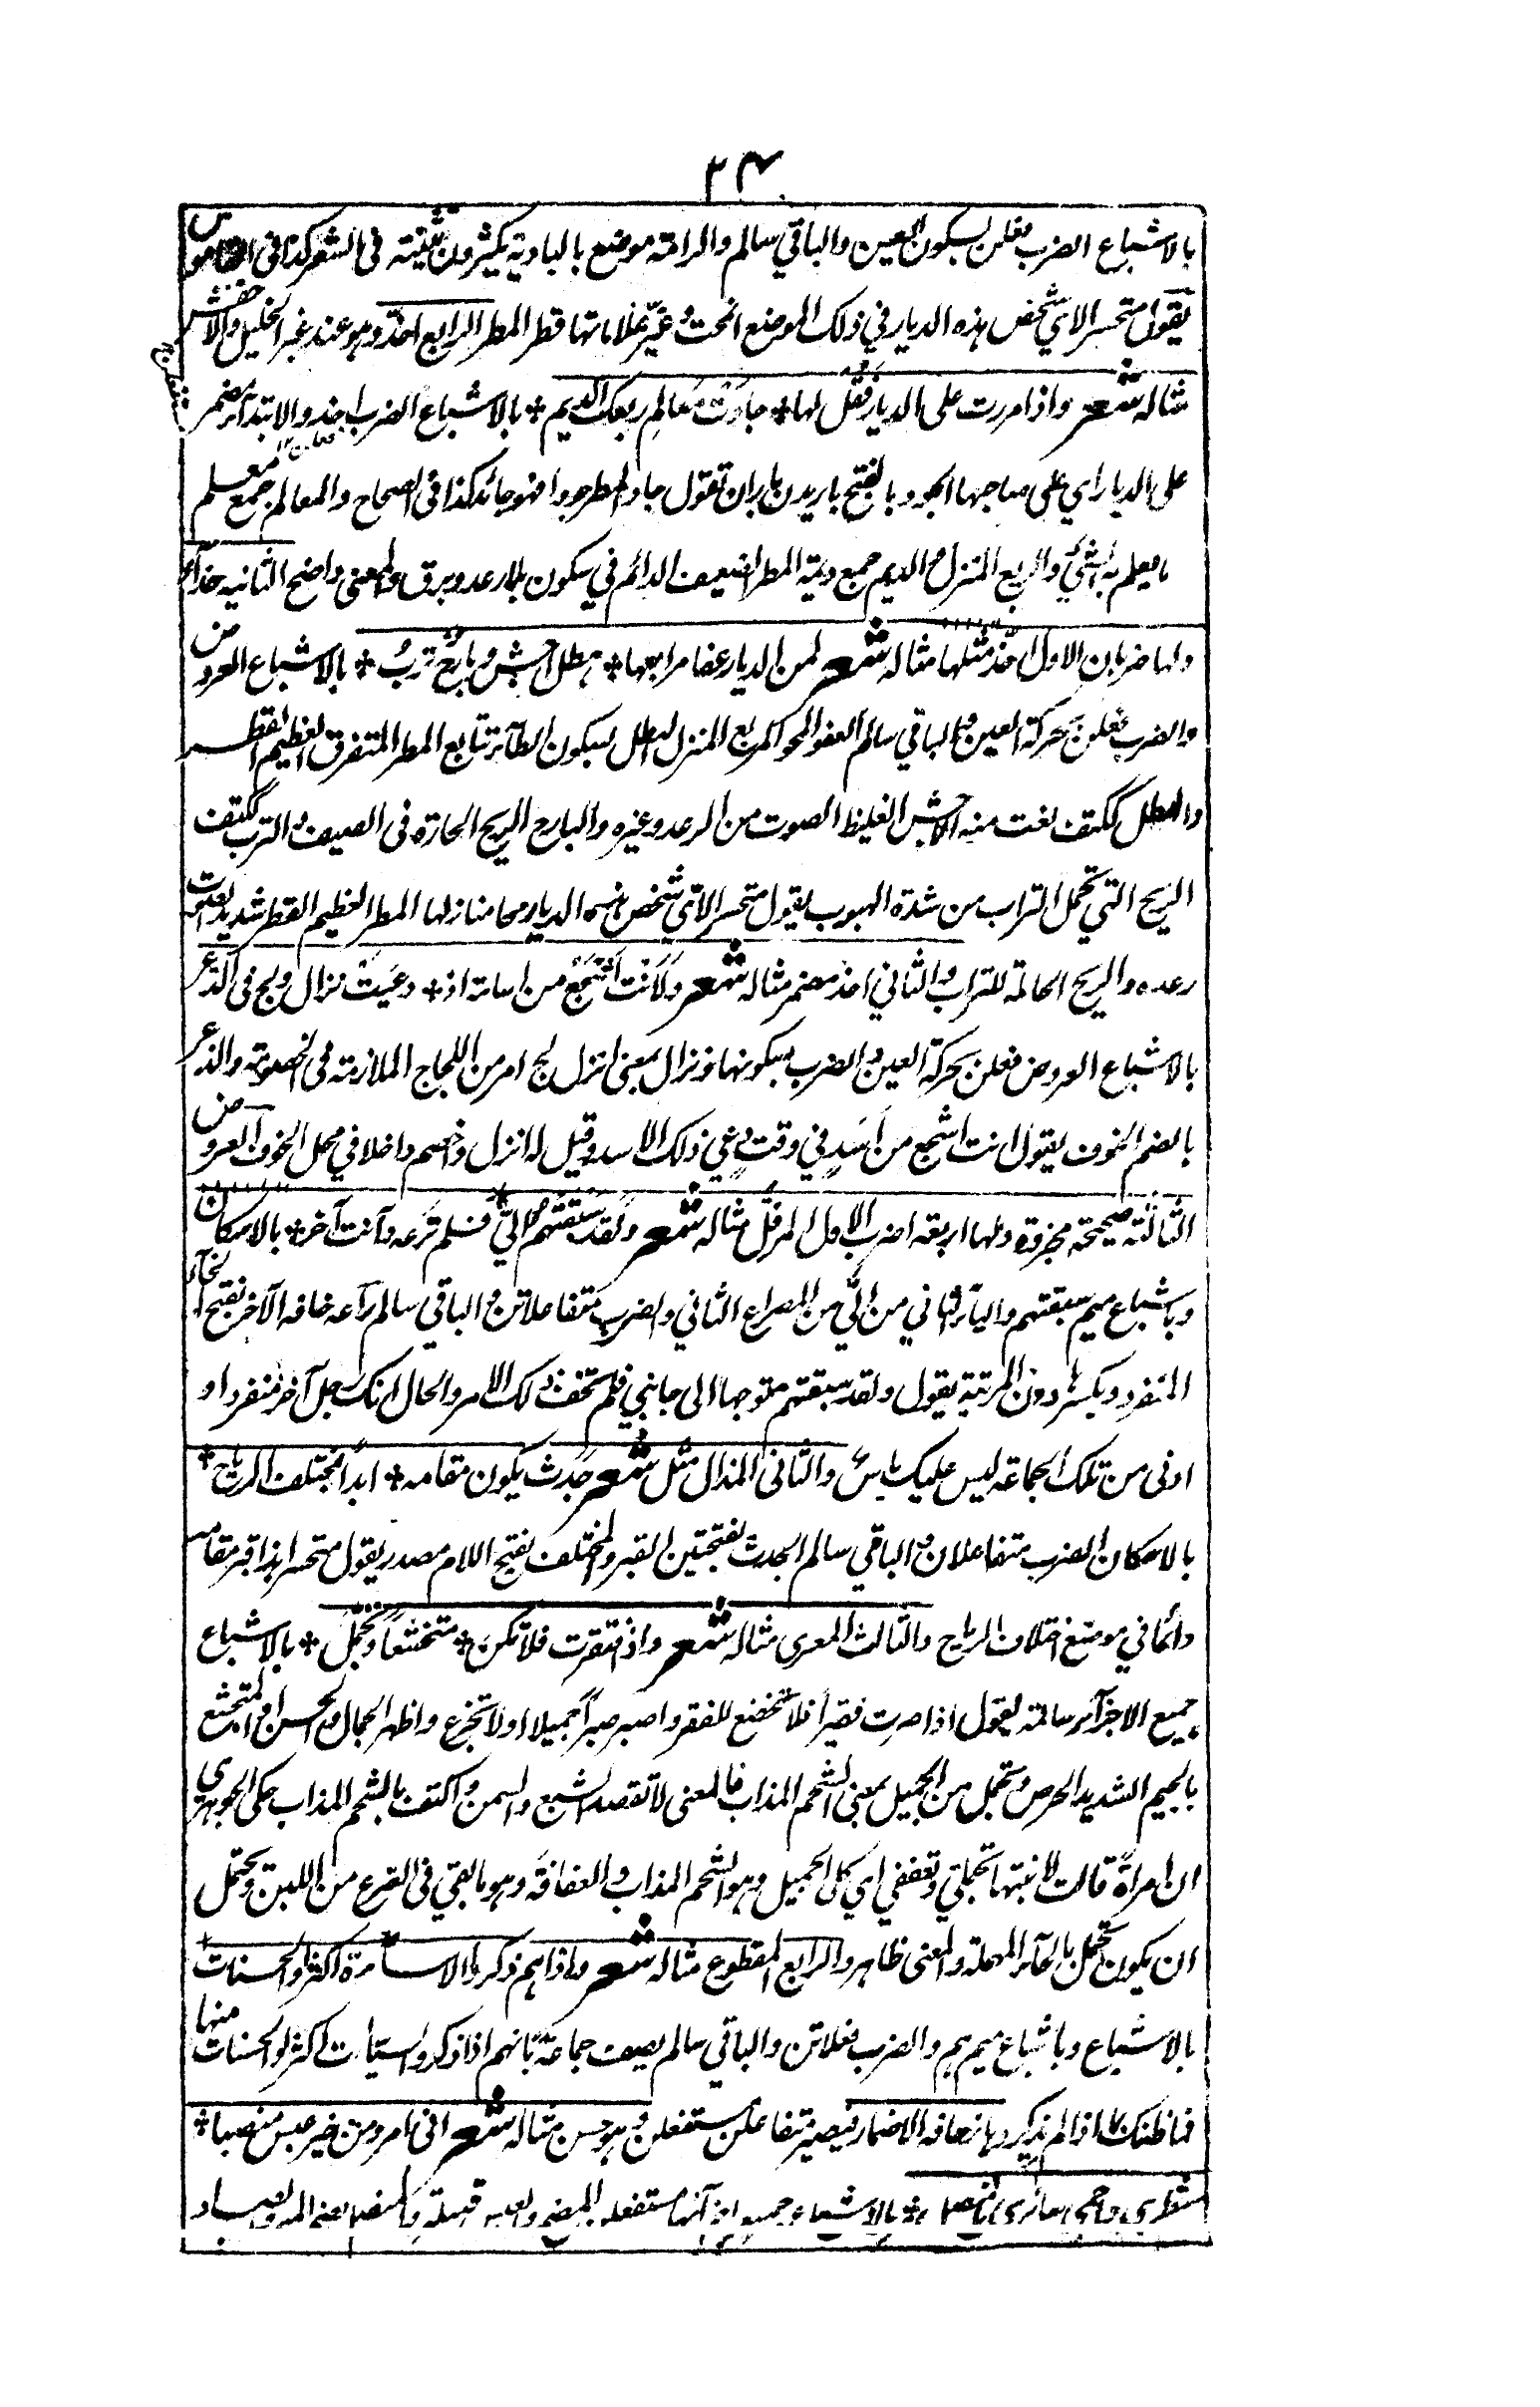 ٢٤
بالاشباع الضرب فعلن بسكون العين والباقي سالم والرامة موضع بالبادية يكثرون تثنيته فى الشعر كذا فى القاموس
يقول متحسرا لاي شخص هذه الديار في ذلك الموضع انمحت وغير علاماتها قطر المطر الرابع احذ وهو عند غير الخليل والاخفش
مثاله شعر واذا مررت على الديار فقل لها * جادت معالم ربعك الديم * بالاشباع الضرب احذ والابتداء مضمر
على الديار اي على صاحبها الجود بالفتح باريدن باران تقول جاد المطر جودا فهو جائد كذا فى الصحاح والمعالم جمع معلم
ما يعلم به الشئ والربع المنزل الديم جمع ديمة المطر الضعيف الدائم في سكون بلا رعد وبرق والمعنى واضح الثانيه حذاء
ولها ضربان الاول احذ مثلها مثاله شعر لمن الديار عفا مرابعها * هطل اجش وبارح ترب * بالاشباع العروض
والضرب فعلن بحركة العين والباقي سالم العفو المحو المربع المنزل الهطل بسكون الطاء تتابع المطر المتفرق العظيم القطر
والهطل ككتف نعت منه الاجش الغليظ الصوت من الرعد وغيره والبارح الريح الحارة فى الصيف والترب ككتف
الريح التي تحمل التراب من شدة الهبوب يقول متحسرا لاي شخص هذه الديار محا منازلها المطر العظيم القطر شديد الصوت
رعده والريح الحاملة للتراب والثاني احذ مضمر مثاله شعر ولانت اشجع من اسامة اذ * دعيت نزال ولج فى الذعر
بالاشباع العروض فعلن بحركة العين والضرب بسكونها ونزال بمعنى انزل لج امر من اللجاج الملازمة فى الخصومة والذعر
بالضم الخوف يقول انت اشجع من اسد في وقت دعي ذلك الاسد وقيل له انزل وخصم داخلا في محل الخوف العروض
الثالثة صحيحة مجزوة ولها اربعة اضرب الاول المرفل مثاله شعر ولقد سبقتهم الي * فلم نزعه وانت آخر * بالاسكان
وباشباع ميم سبقتهم والياء الثاني من الي من المصراع الثاني والضرب متفاعلاتن والباقي سالم راعه خافه الآخر بفتح الخاء
المنفرد وبكسرها دون المرتبة يقول ولقد سبقتهم متوجها الى جانبي فلم تخف ذلك الامر والحال انك رجل آخر منفردا و
ادنى من تلك الجماعة ليس عليك باس والثانى المذال مثل شعر جدث يكون مقامه * ابدا بمختلف الرياح *
بالاسكان الضرب متفاعلان والباقي سالم الجدث بفتحتين القبر والمختلف بفتح اللام مصدر يقول متحسرا هذا قبر مقامه
دائما في موضع اختلاف الرياح والثالث المعرى مثاله شعر واذا افتقرت فلا تكن * متخشعا وتجمل * بالاشباع
جميع الاجزاء سالمة يقول اذا صرت فقيرا فلا تخضع للفقر واصبر صبرا جميلا اولا تجزع واظهر الجمال والحسن او المتجشع
بالجيم الشديد الحرص وتجمل من الجميل بمعنى الشحم المذاب فالمعنى لا تقصد الشبع والسمن واكتف بالشحم المذاب حكى الجوهري
ان امراة قالت لابنتها تجملي وتعففي اي كلى الجميل وهو الشحم المذاب والعفافة وهو ما بقي فى الضرع من اللبن ويحتمل
ان يكون تحمل بالحاء المهملة والمعنى ظاهر والرابع المقطوع مثاله شعر واذا هم ذكروا الاساءة اكثروا الحسنات
بالاشباع وباشباع ميم هم والضرب فعلاتن والباقي سالم يصف جماعة بانهم اذا ذكروا السيأت اكثروا الحسنات منها
فما ظنك اذا لم يذكروها زحافه الاضمار فيصير متفاعلن مستفعلن وهو حسن مثاله شعر انى امرؤ من خير عبس منصبا *
شطري واحمي سائري بالمنصل * بالاشباع جميع اجزائها مستفعلن المنصب والعبس قبيلة والمنصل بضم الميم والصاد